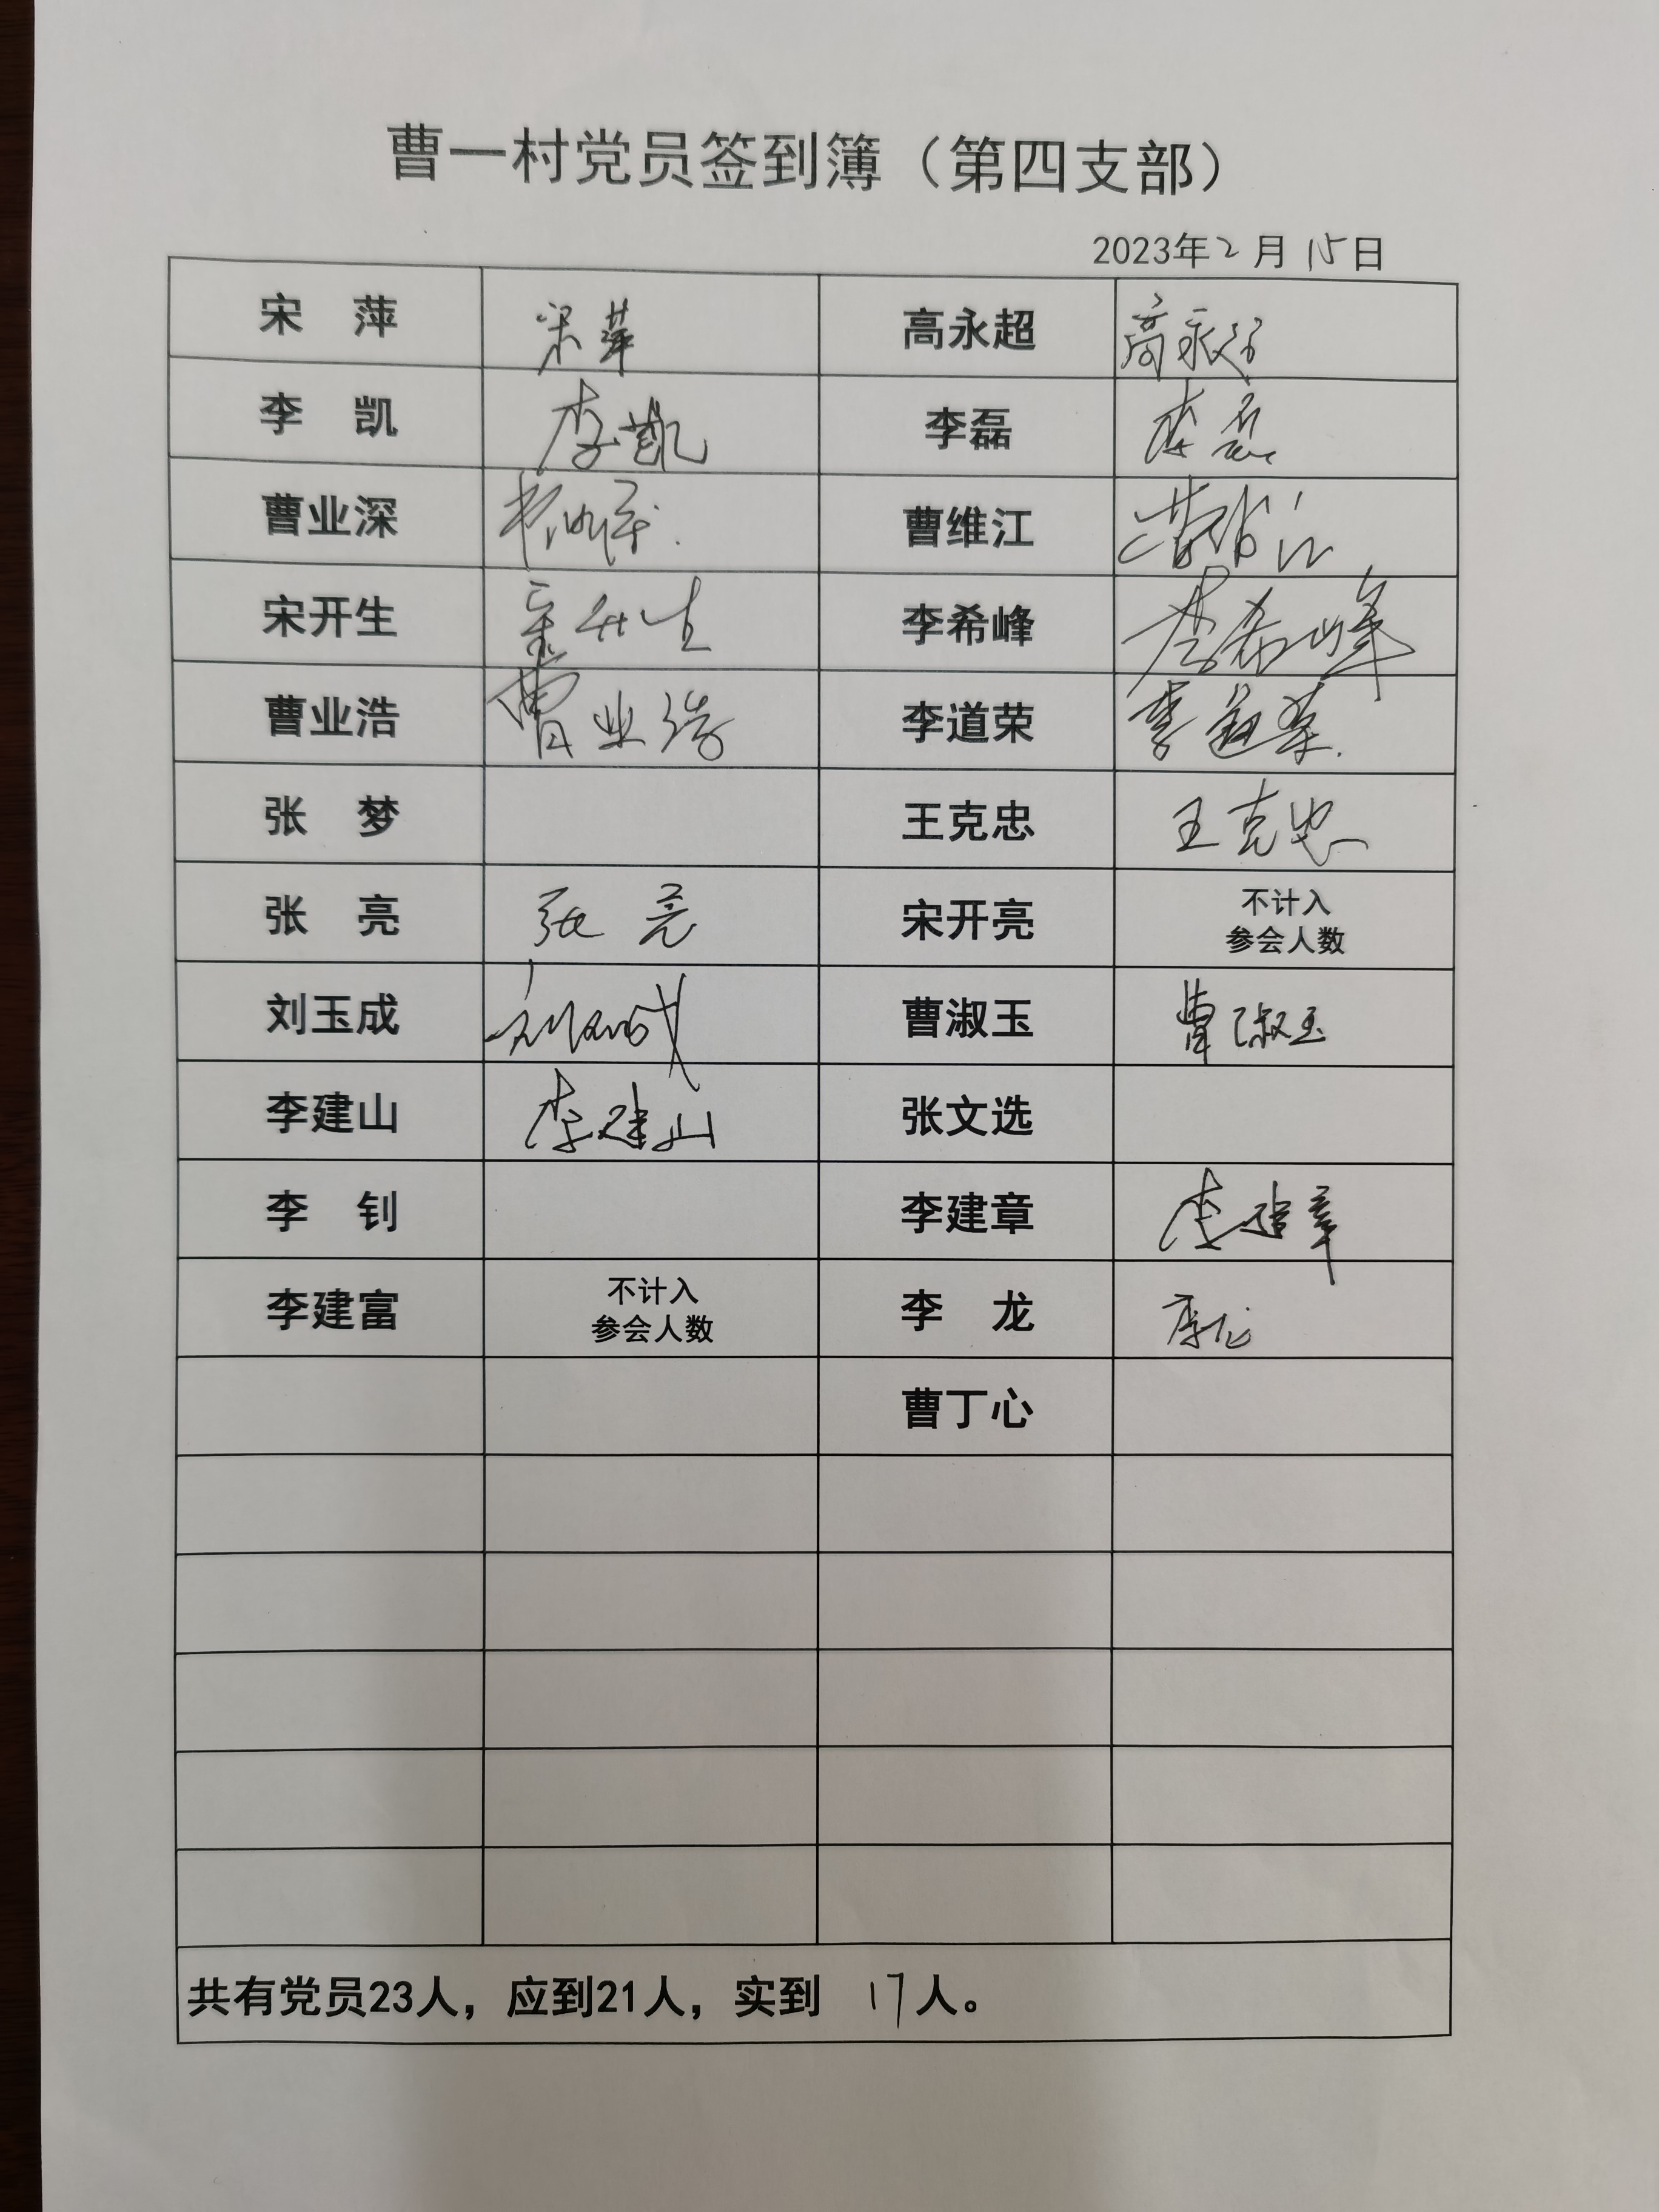 曹一村党员签到簿（第四支部）
2023年2月15日
宋 萍 宋萍 高永超 高永超
李 凯 李凯 李磊 李磊
曹业深 曹业深 曹维江 曹维江
宋开生 宋开生 李希峰 李希峰
曹业浩 曹业浩 李道荣 李道荣
张 梦 王克忠 王克忠
张 亮 张亮 宋开亮 不计入
参会人数
刘玉成 刘玉成 曹淑玉 曹淑玉
李建山 李建山 张文选
李 钊 李建章 李建章
李建富 不计入
参会人数 李 龙 李龙
曹丁心
共有党员23人，应到21人，实到 17人。